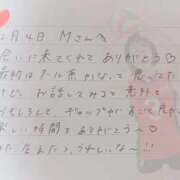 2月4日 Mさんへ
会いに来てくれてありがとう♡
最初はクール系かなって思ってた
けど、お話してみると意外と
おもしろくて、ギャップがあって
楽しい時間をありがとう〜♡
また会えたら、うれしいな〜!!